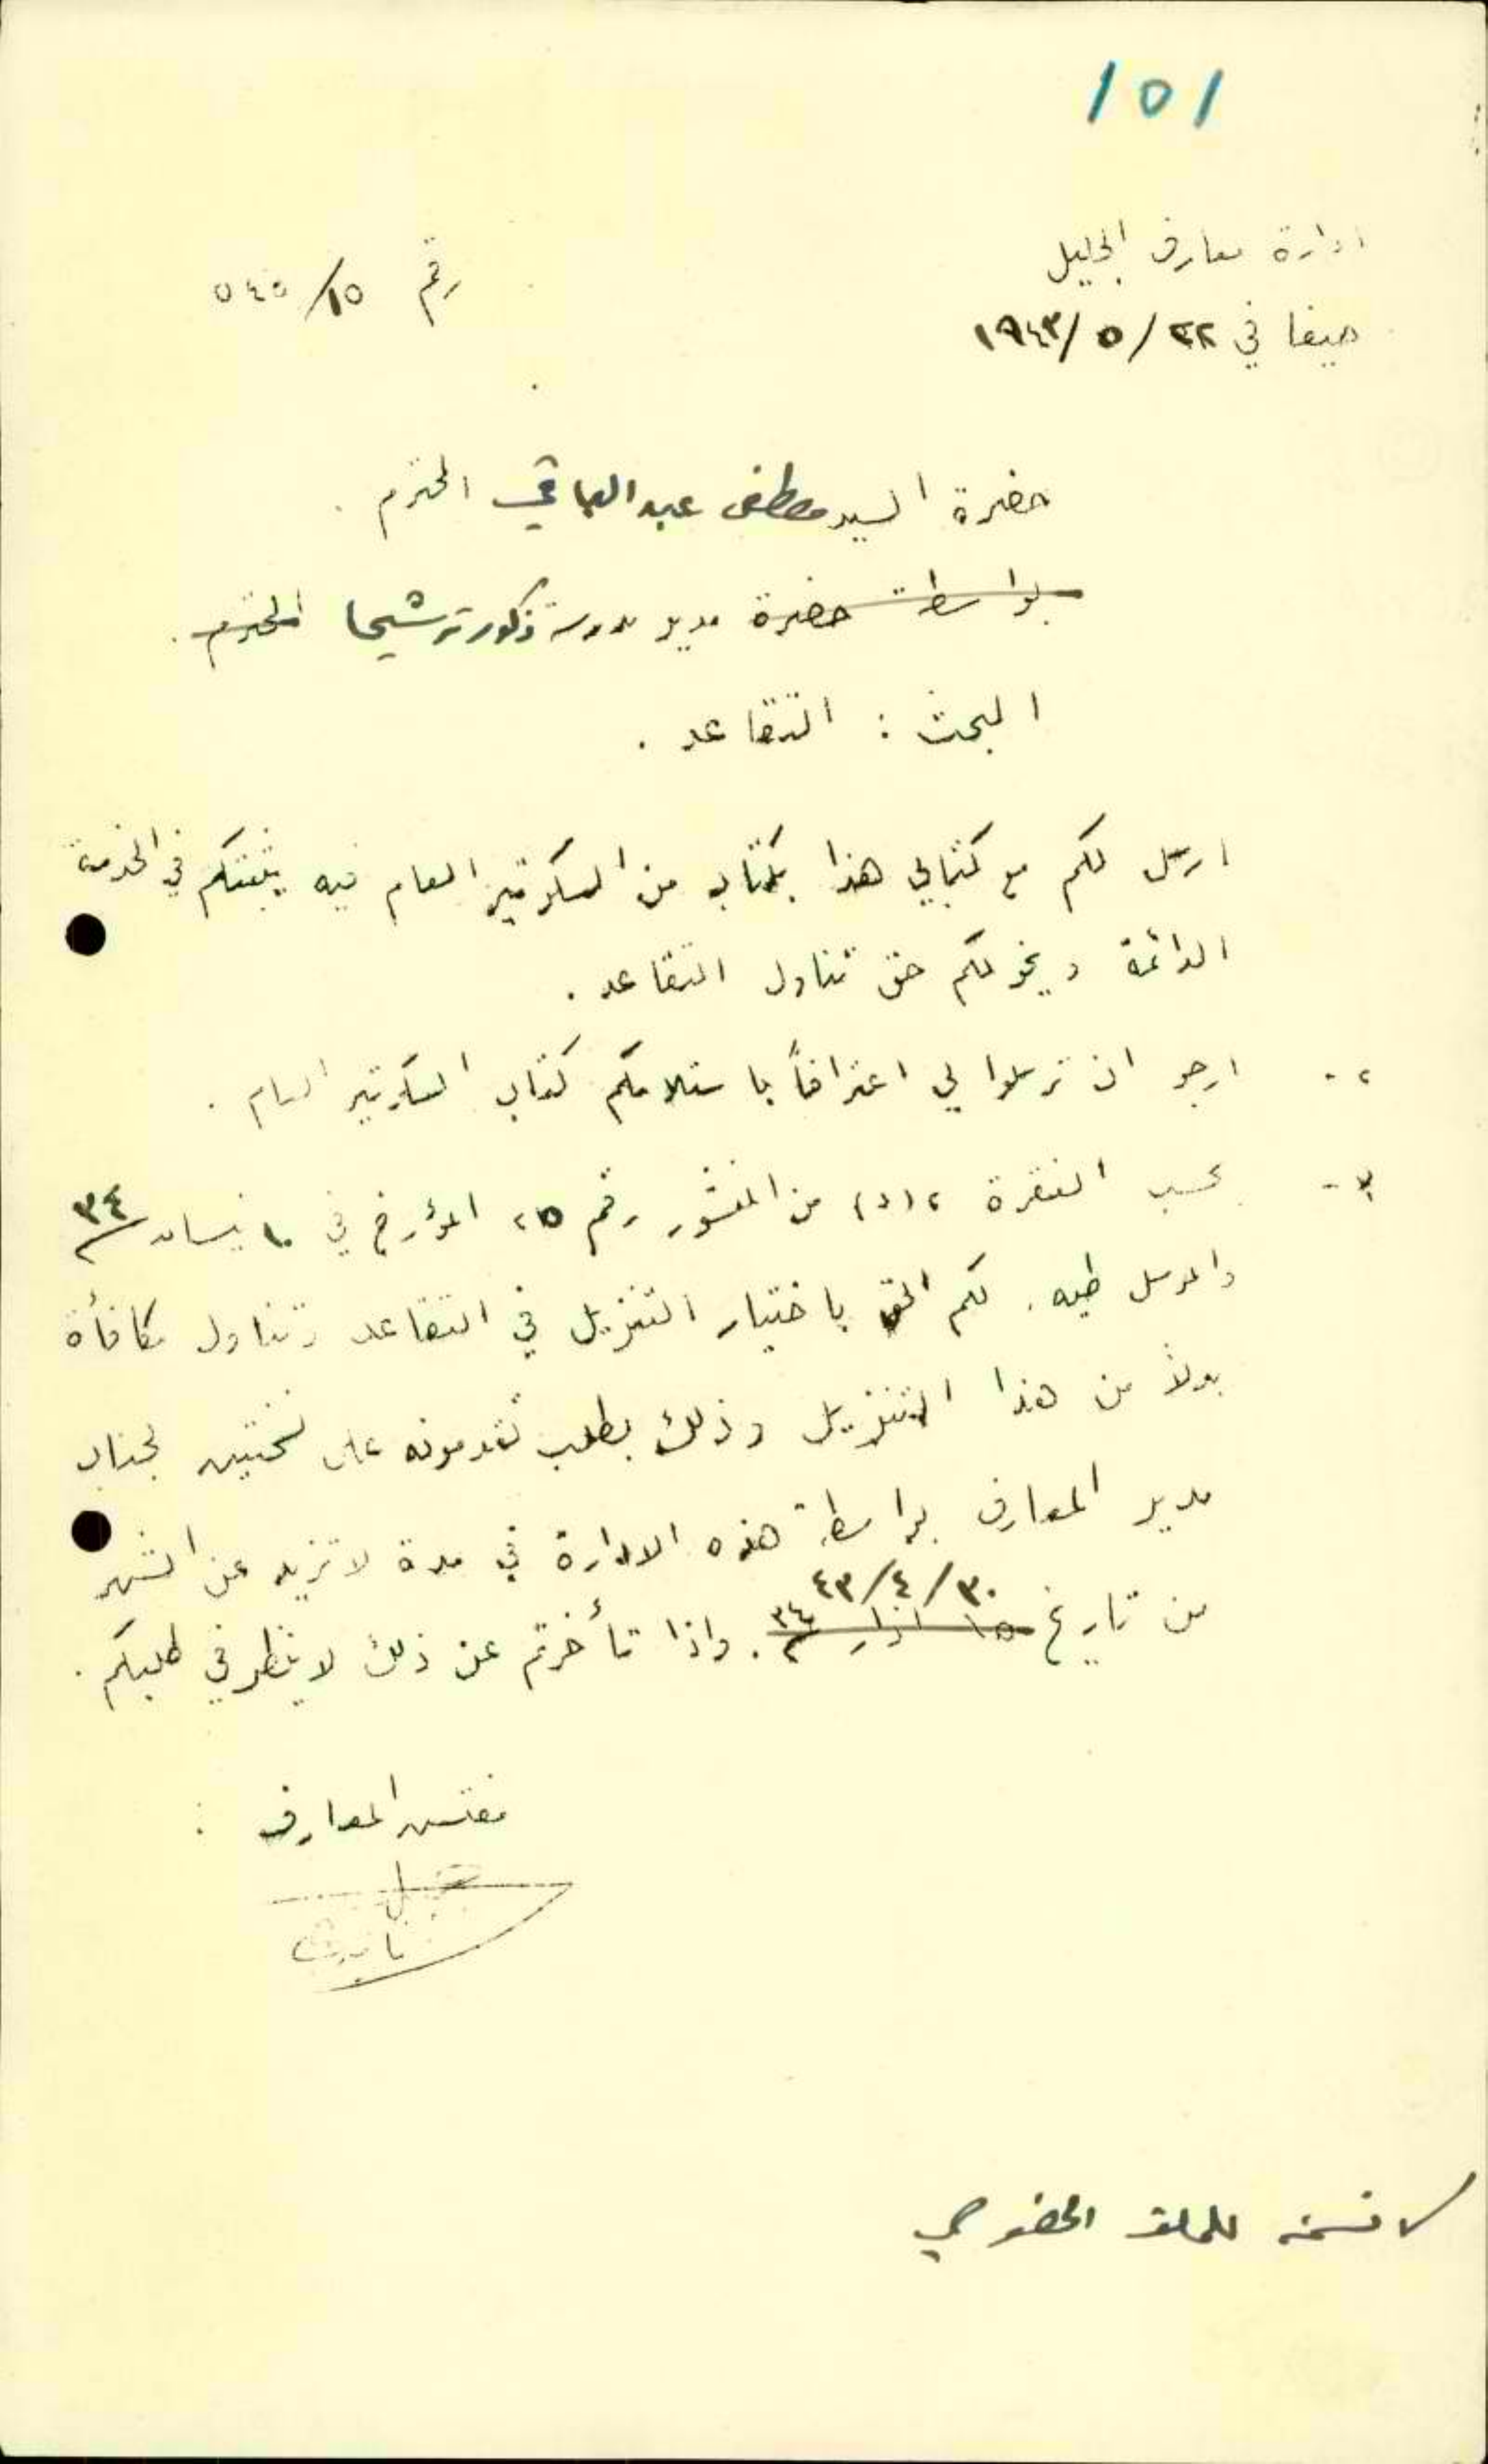 ١٥١
ادارة معارف الجليل
رقم ١٥/٥٤٥
حيفا في ٢٢/٥/١٩٤٣
حضرة السيد مصطفى عبد الباقي المحترم .
بواسطة حضرة مدير مدرسة ذكور ترشيحا المحترم .
البحث : التقاعد .
ارسل لكم مع كتابي هذا بكتاب من السكرتير العام فيه يثبتكم في الخدمة
الدائمة ويخولكم حق تناول التقاعد .
٢ - ارجو ان ترسلوا لي اعترافاً باستلامكم كتاب السكرتير العام .
٣ - بحسب الفقرة ٢ (د) من المنشور رقم ٢٥ المؤرخ في ١٠ نيسان ٣٤
والمرسل طيه . لكم الحق باختيار التنزيل في التقاعد وتناول مكافأة
بدلاً من هذا التنزيل وذلك بطلب تقدمونه على نسختين لجناب
مدير المعارف بواسطة هذه الادارة في مدة لا تزيد عن الشهر
من تاريخ ١٥ اذار ٣٤ ٣٠/٤/٤٣ . واذا تأخرتم عن ذلك لا ينظر في طلبكم .
مفتش المعارف :
نسخة للملف الخصوصي